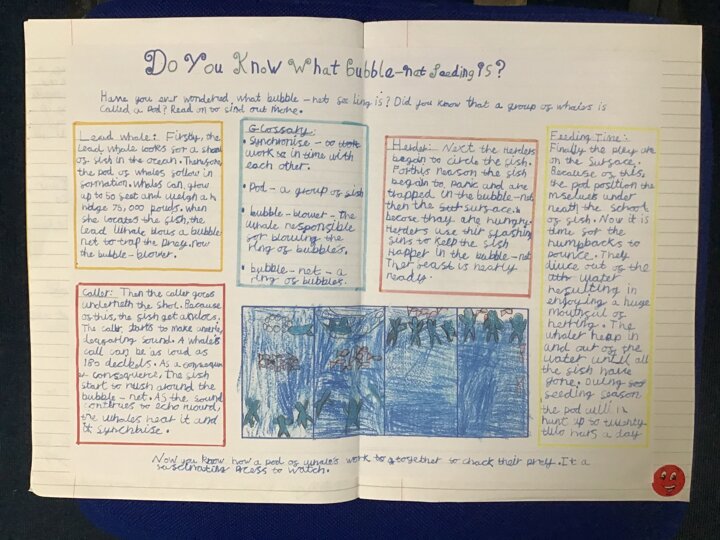 Do You Know What Bubble-net feeding is?
Have you ever wondered what bubble-net feeding is? Did you know that a group of whales is
called a Pod? Read on to find out more.
Lead whale: Firstly, the
Lead whale looks for a shoal
of fish in the ocean. Therefore
the pod of whales follow in
formation. Whales can, grow
up to 50 feet and weigh a
hudge 75,000 pounds. When
she locates the fish, the
lead whale blows a bubble
net to trap the pray. Now
the bubble-blower.
Glossary:
• Synchronise - to
work in time with
each other.
• Pod - a group of fish
• bubble-blower - the
whale responsible
for blowing the
ring of bubbles.
• bubble-net - a
ring of bubbles.
Herder: Next the Herders
begain to circle the fish.
For this reason the fish
begain to panic and are
trapped in the bubble-net
then the surface
becose thay are hungry.
Herders use their flashing
fins to keep the fish
in the bubble-net
feast is nearly
ready.
Feeding Time:
Finally the pley are
on the Surface.
Because of this,
the pod position the
mselves under
neath the school
of fish. Now it is
time for the
humpbacks to
pounce. They
out of the
water
resulting in
enjoying a huge
mouthful of
herring. The
whales
in and out of the
water until all
the fish have
gone. During
feeding season
the pod will
hunt up to twenty
two hours a day
Caller: Then the caller goes
underneth the shol. Because
of this, the fish get
The caller starts to make
sound. A whale's
call can be as loud as
180 decibels. As a
consequence, the fish
start to rush around the
bubble-net. As the sound
continues to echo
the whales hear it and
it synchrise.
Now you know how a pod of whale's work together to their prey. It a
fascinating process to watch.